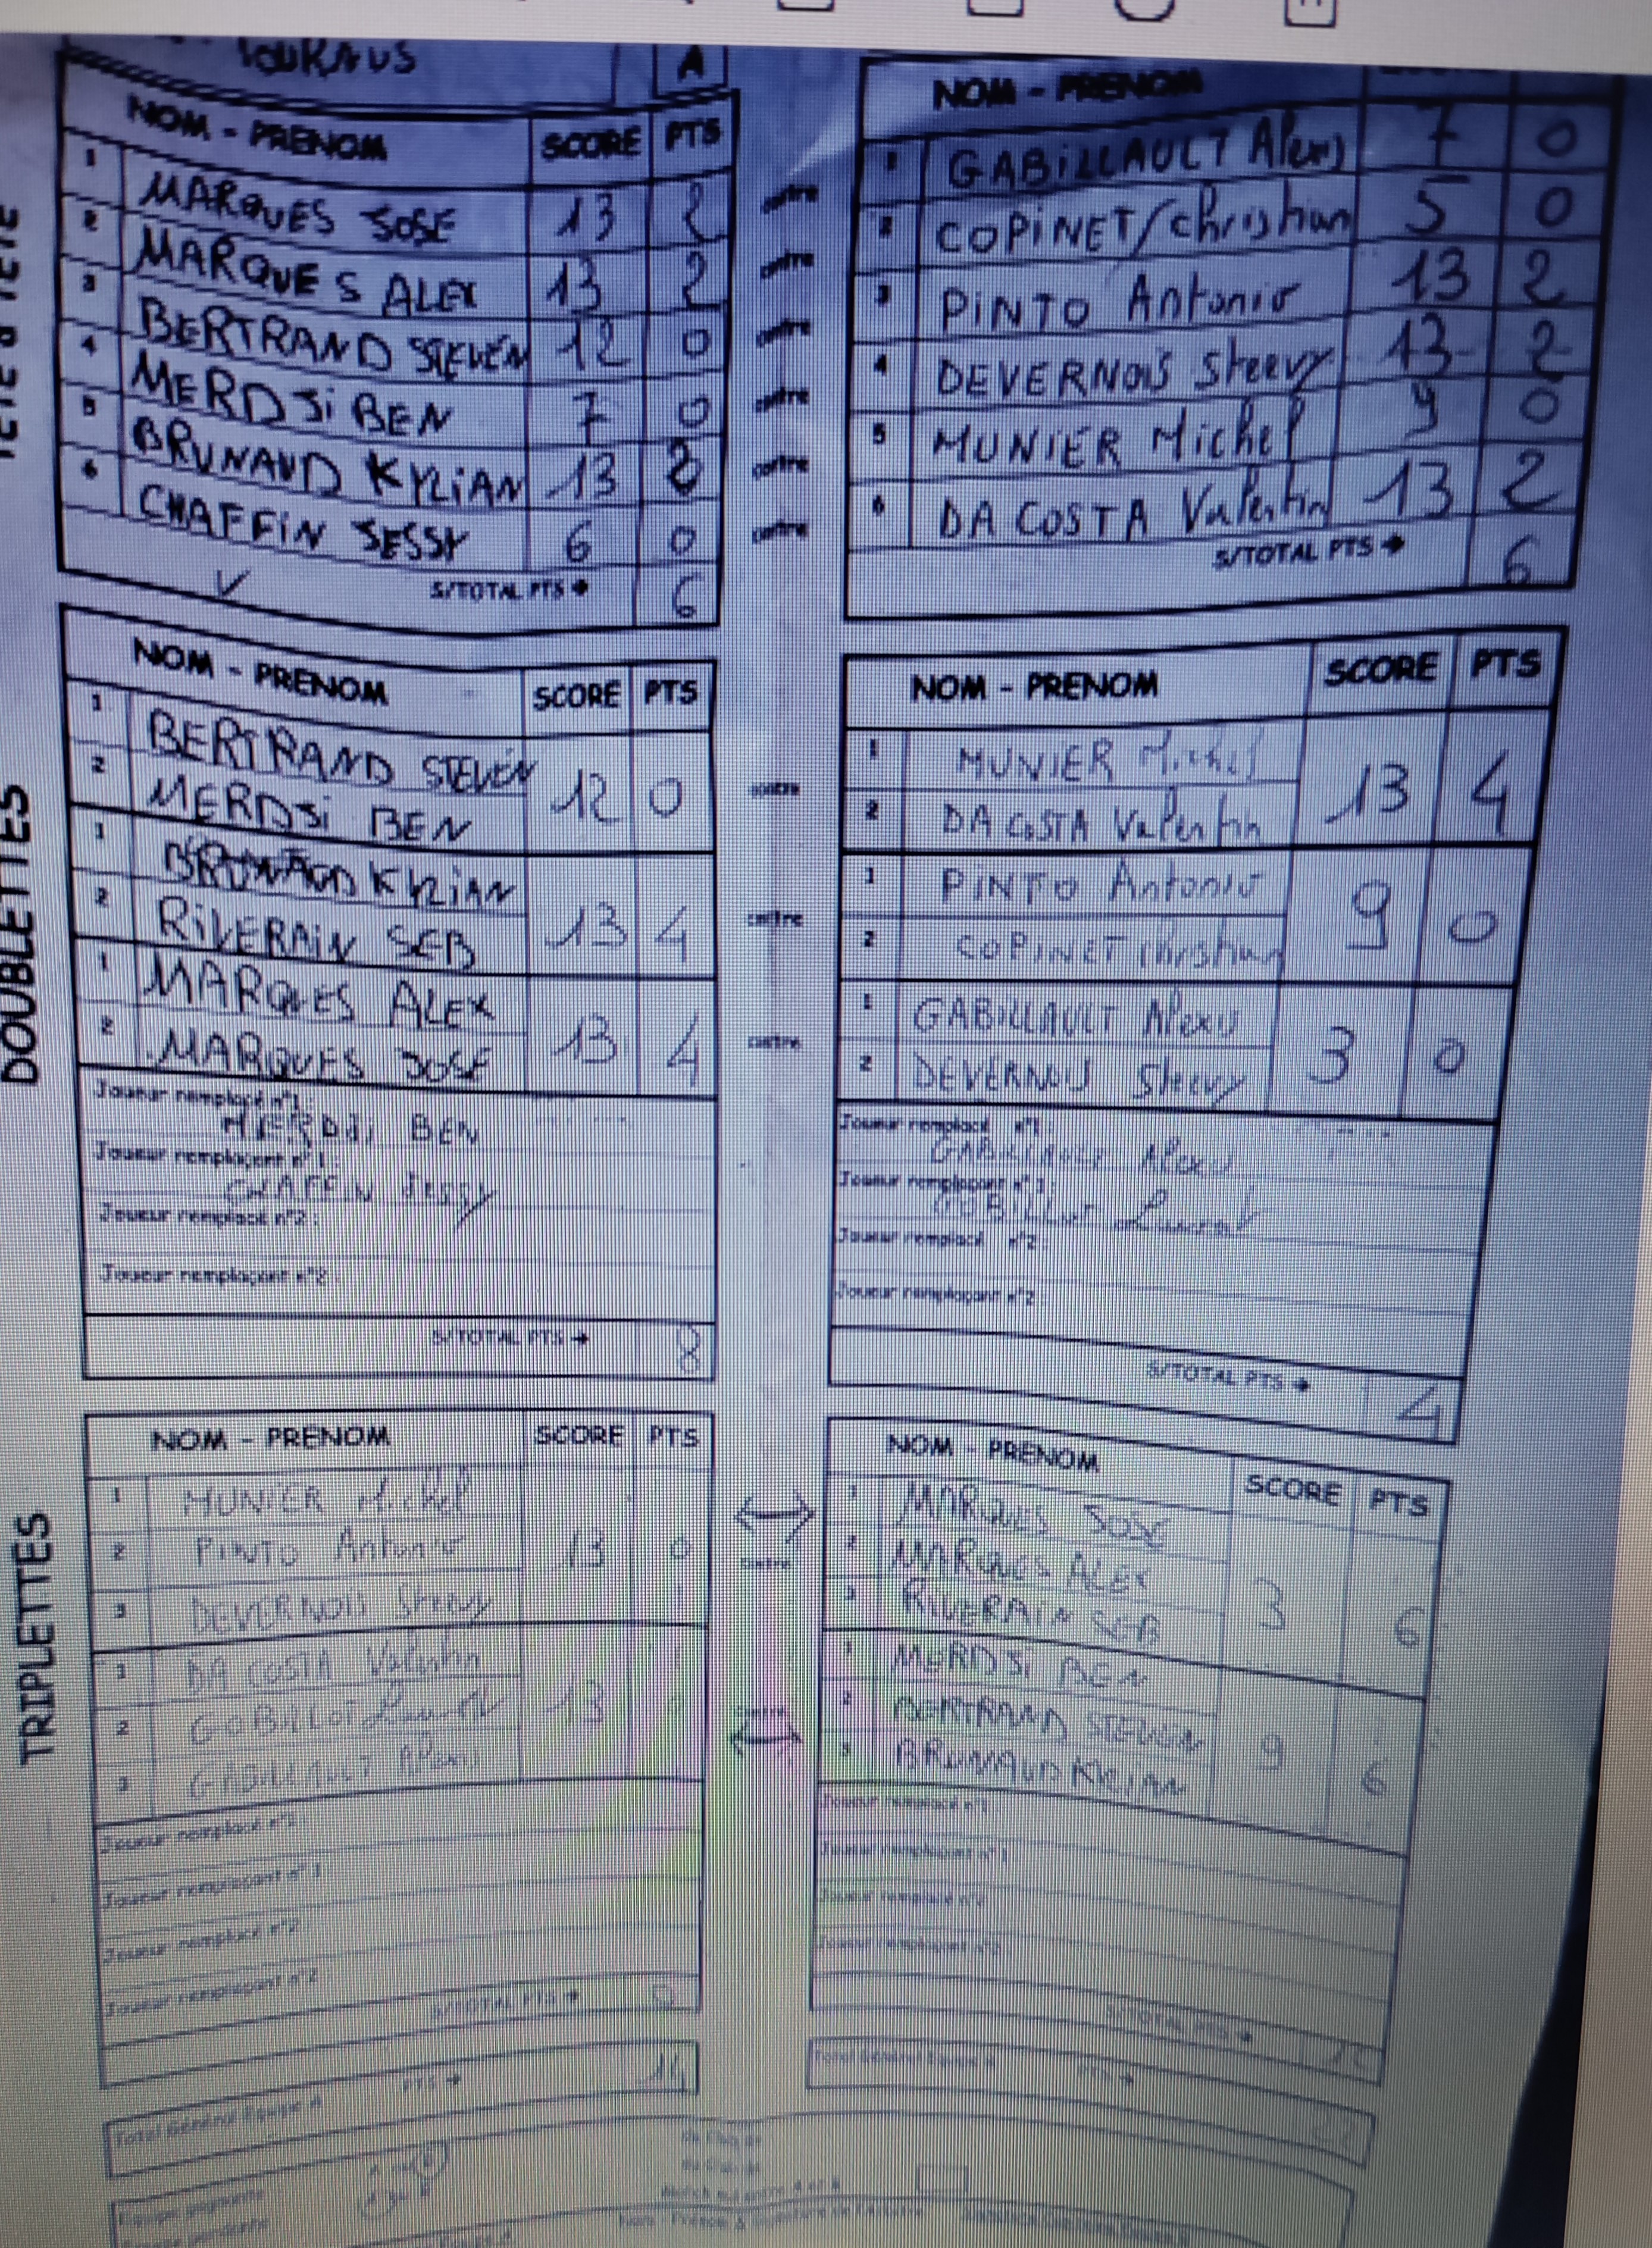 TOURNUS A
NOM - PRENOM SCORE PTS
1 MARQUES JOSE 13 2
2 MARQUES ALEX 13 2
3 BERTRAND STEVEN 12 0
4 MERDJI BEN 7 0
5 BRUNAUD KYLIAN 13 2
6 CHAFFIN JESSY 6 0
S/TOTAL PTS → 6
contre
contre
contre
contre
contre
contre
NOM - PRENOM
1 GABILLAULT Alexis 7 0
2 COPINET/Christian 5 0
3 PINTO Antonio 13 2
4 DEVERNOIS Steevy 13 2
5 MUNIER Michel 9 0
6 DA COSTA Valentin 13 2
S/TOTAL PTS → 6
DOUBLETTES
NOM - PRENOM SCORE PTS
1 BERTRAND STEVEN
2 MERDJI BEN
12 0
1 BRUNAUD KYLIAN
2 RIVERAIN SEB
13 4
1 MARQUES ALEX
2 MARQUES JOSE
13 4
Joueur remplacé n°1 :
MERDJI BEN
Joueur remplaçant n°1 :
CHAFFIN Jessy
Joueur remplacé n°2 :
Joueur remplaçant n°2 :
S/TOTAL PTS → 8
contre
contre
contre
NOM - PRENOM SCORE PTS
1 MUNIER Michel
2 DA COSTA Valentin
13 4
1 PINTO Antonio
2 COPINET Christian
9 0
1 GABILLAULT Alexis
2 DEVERNOIS Steevy
3 0
Joueur remplacé n°1 :
GABILLAULT Alexis
Joueur remplaçant n°1 :
GOBILLOT Laurent
Joueur remplacé n°2 :
Joueur remplaçant n°2 :
S/TOTAL PTS → 4
TRIPLETTES
NOM - PRENOM SCORE PTS
1 MUNIER Michel
2 PINTO Antonio
3 DEVERNOIS Steevy
13 0
1 DA COSTA Valentin
2 GOBILLOT Laurent
3 GABILLAULT Alexis
13
Joueur remplacé n°1 :
Joueur remplaçant n°1 :
Joueur remplacé n°2 :
Joueur remplaçant n°2 :
S/TOTAL PTS → 0
Total Général Equipe A PTS → 14
contre
NOM - PRENOM SCORE PTS
1 MARQUES JOSE
2 MARQUES ALEX
3 RIVERAIN SEB
3 6
1 MERDJI BEN
2 BERTRAND STEVEN
3 BRUNAUD KYLIAN
9 6
Joueur remplacé n°1 :
Joueur remplaçant n°1 :
Joueur remplacé n°2
Joueur remplaçant n°2
S/TOTAL PTS →
Total Général Equipe PTS →
Equipe gagnante